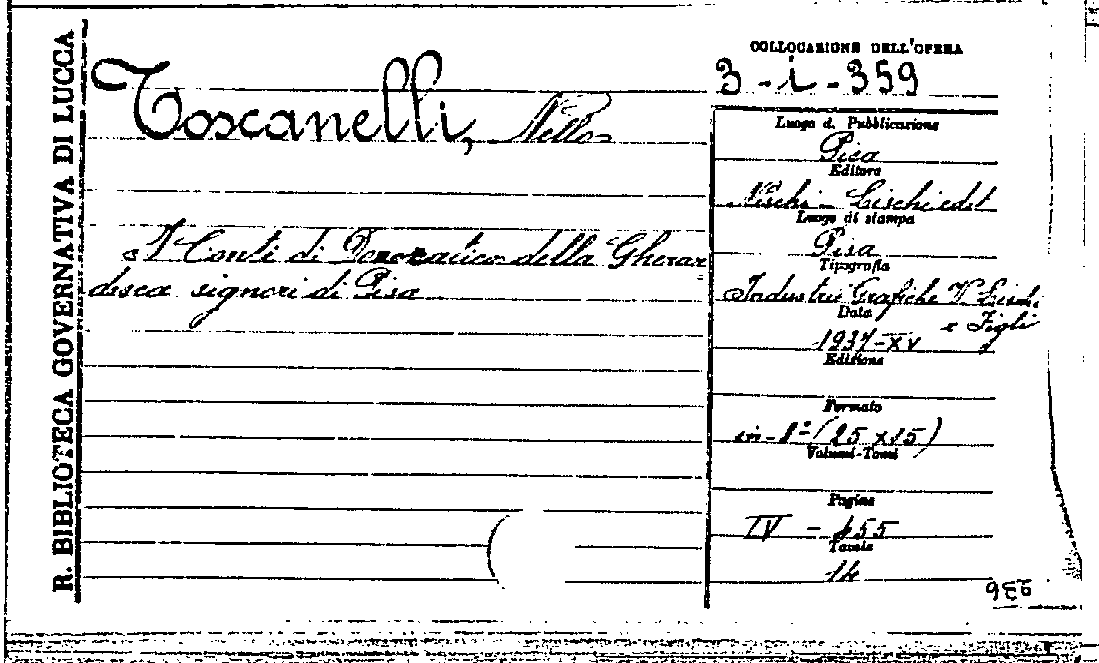 R. BIBLIOTECA GOVERNATIVA DI LUCCA
COLLOCAZIONE DELL'OPERA
3 - i - 359
Toscanelli, Nello
I Conti di Donoratico della Gherar
desca signori di Pisa
Luogo d. Pubblicazione
Pisa
Editore
Nischi - Lischi edit
Luogo di stampa
Pisa
Tipografia
Industrie Grafiche V. Lischi
e Figli
Data
1937-XV
Edizione
Formato
in-8° (25 x 15)
Volumi-Tomi
Pagine
IV - 455
Tavole
14
936